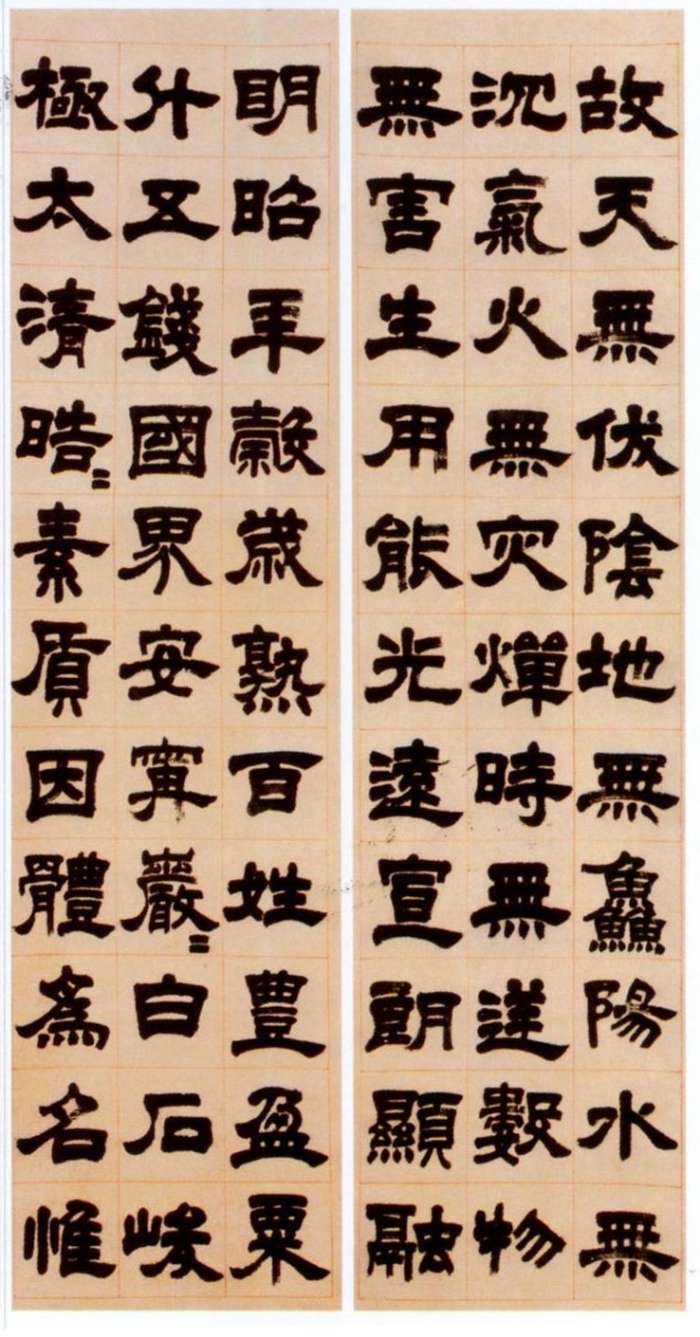 故天無伏陰地無鱻陽水無
沉氣火無灾燀時無逆數物
無害生用能光遠宣朗顯融
明昭年穀歲熟百姓豐盈粟
升五錢國界安寧巖〻白石峻
極太清晧〻素質因體爲名惟